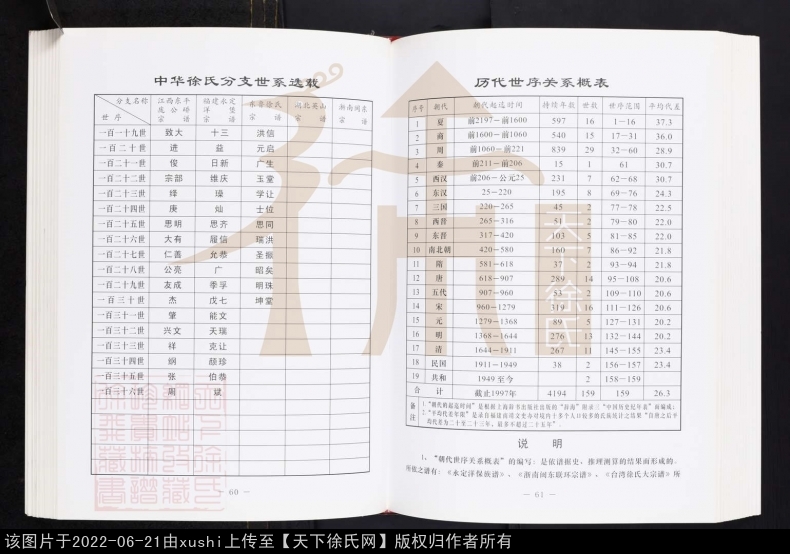 中华徐氏分支世系选载
分支名称 世序 江西东平庞公桥宗谱 福建永定洋堡宗谱 东鲁徐氏宗谱 湖北英山宗谱 浙南闽东宗谱
一百一十九世 致大 十三 洪信
一百二十世 进 益 元启
一百二十一世 俊 日新 广生
一百二十二世 宗部 维庆 玉堂
一百二十三世 绎 璪 学让
一百二十四世 庚 灿 士位
一百二十五世 思明 思齐 思同
一百二十六世 大有 履信 瑞洪
一百二十七世 仁善 允恭 圣振
一百二十八世 公亮 广 昭矣
一百二十九世 友成 季孚 明珠
一百三十世 杰 戊七 坤堂
一百三十一世 肇 能文
一百三十二世 兴文 天瑞
一百三十三世 祥 克让
一百三十四世 纲 颜珍
一百三十五世 张 伯恭
一百三十六世 周 斌
— 60 —
历代世序关系概表
序号 朝代 朝代起迄时间 持续年数 世数 世序范围 平均代差
1 夏 前2197—前1600 597 16 1—16 37.3
2 商 前1600—前1060 540 15 17—31 36.0
3 周 前1060—前221 839 29 32—60 28.9
4 秦 前211—前206 15 1 61 30.7
5 西汉 前206—公元25 231 7 62—68 30.7
6 东汉 25—220 195 8 69—76 24.3
7 三国 220—265 45 2 77—78 22.5
8 西晋 265—316 51 2 79—80 22.0
9 东晋 317—420 103 5 81—85 22.0
10 南北朝 420—580 160 7 86—92 21.8
11 隋 581—618 37 2 93—94 21.8
12 唐 618—907 289 14 95—108 20.6
13 五代 907—960 53 2 109—110 20.6
14 宋 960—1279 319 16 111—126 20.6
15 元 1279—1368 89 5 127—131 20.2
16 明 1368—1644 276 13 132—144 20.2
17 清 1644—1911 267 11 145—155 23.4
18 民国 1911—1949 38 2 156—157 23.4
19 共和 1949 至今 2 158—159
合计 截止1997年 4194 159 159 26.3
备注
1“朝代的起迄时间”是根据上海辞书出版社出版的《辞海》附录三“中国历史纪年表”而编成;
说明
1、“朝代世序关系概表”的编写:是依谱据史、推理测算的结果而形成的。
所依之谱有:《永定洋保族谱》、《浙南闽东联环宗谱》、《台湾徐氏大宗谱》所
— 61 —
天下徐氏
该图片于2022-06-21由xushi上传至【天下徐氏网】版权归作者所有